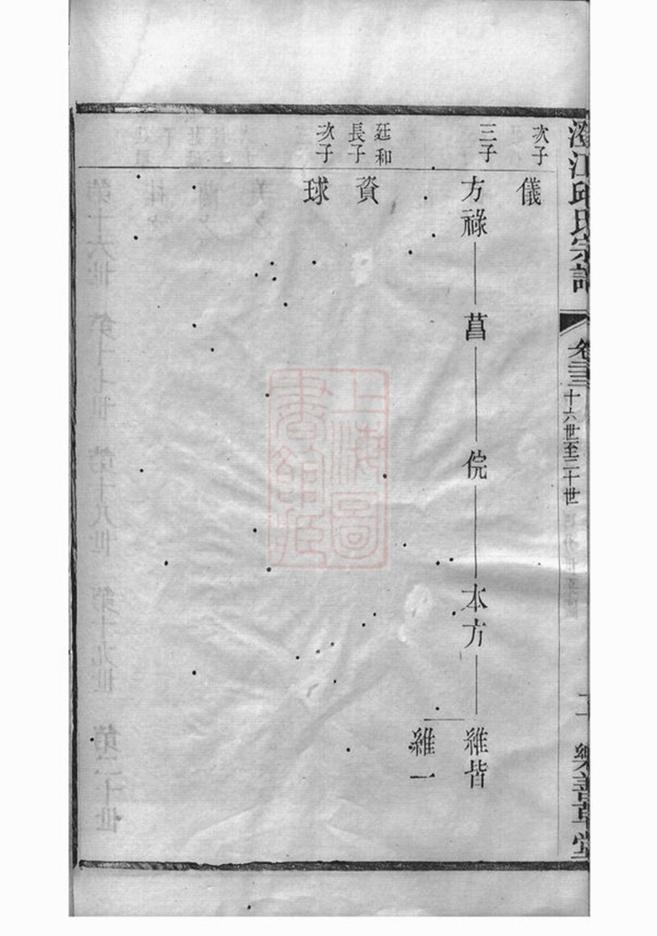 澄江邱氏宗譜
卷三三
十六世至二十世
二
樂善草堂
次子 儀
三子 方祿 菖 俒 本方 維皆
維一
廷和
長子 資
次子 球
上海圖書館藏
第十六世 第十七世 第十八世 第十九世 第二十世